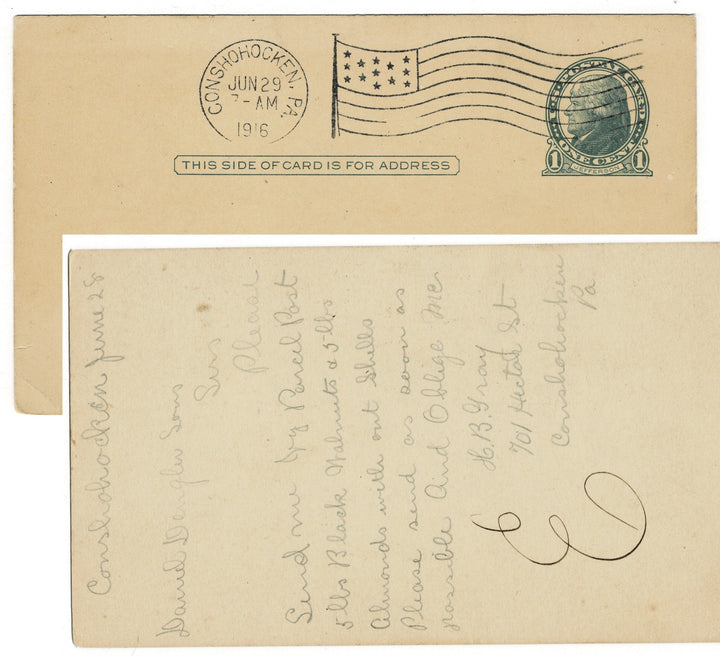 CONSHOHOCKEN, PA.
JUN 29
7-AM
1916
U.S. POSTAL CARD
ONE CENT
1 JEFFERSON 1
THIS SIDE OF CARD IS FOR ADDRESS
Conshohocken June 28
Daniel Dengler Sons
Sirs
Please
Send me by Parcel Post
5 lbs Black Walnuts & 5 lbs
Almonds with out Shells
Please send as soon as
possible And Oblige Me
H.B. Gray
701 Hector St
Conshohocken
Pa
E